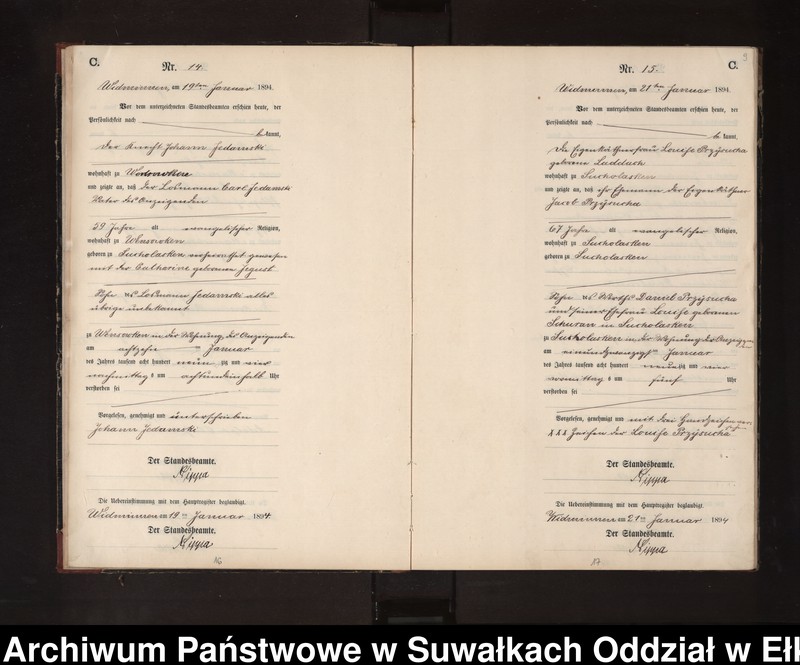 C.
Nr. 14.
Widminnen, am 19ten Januar 1894.
Vor dem unterzeichneten Standesbeamten erschien heute, der
Persönlichkeit nach
be kannt,
der Knecht Johann Jedamski
wohnhaft zu Wensowken
und zeigte an, daß der Losmann Carl Jedamski
Vater des Anzeigenden
Jahre alt evangelischer Religion,
wohnhaft zu Wensowken
geboren zu Sucholasken verheirathet gewesen
mit der Catharine geborenen
Sohn des Losmann Jedamski alles
übrige unbekannt
zu Wensowken in der Wohnung des Anzeigenden
am achtzehn ten Januar
des Jahres tausend acht hundert neunzig und vier
nachmittag s um Uhr
verstorben sei
Vorgelesen, genehmigt und unterschrieben
Johann Jedamski
Der Standesbeamte.
Nippa
Die Uebereinstimmung mit dem Hauptregister beglaubigt.
Widminnen am 19ten Januar 1894
Der Standesbeamte.
Nippa
16
C.
9
Nr. 15.
Widminnen, am 21ten Januar 1894.
Vor dem unterzeichneten Standesbeamten erschien heute, der
Persönlichkeit nach
be kannt,
die Eigenkäthnerfrau Louise Przysucha
geborene Laddach
wohnhaft zu Sucholasken
und zeigte an, daß ihr Ehemann der Eigenkäthner
Jacob Przysucha
67 Jahre alt evangelischer Religion,
wohnhaft zu Sucholasken
geboren zu Sucholasken
Sohn des Wirths Daniel Przysucha
und seiner Ehefrau Louise geborenen
in Sucholasken
zu Sucholasken in der Wohnung der Anzeig.
am einundzwanzigsten Januar
des Jahres tausend acht hundert neunzig und vier
vormittag s um fünf Uhr
verstorben sei
Vorgelesen, genehmigt und mit drei Handzeichen ver.
XXX Zeichen der Louise Przysucha
Der Standesbeamte.
Nippa
Die Uebereinstimmung mit dem Hauptregister beglaubigt.
Widminnen am 21ten Januar 1894
Der Standesbeamte.
Nippa
17
Archiwum Państwowe w Suwałkach Oddział w Ełk